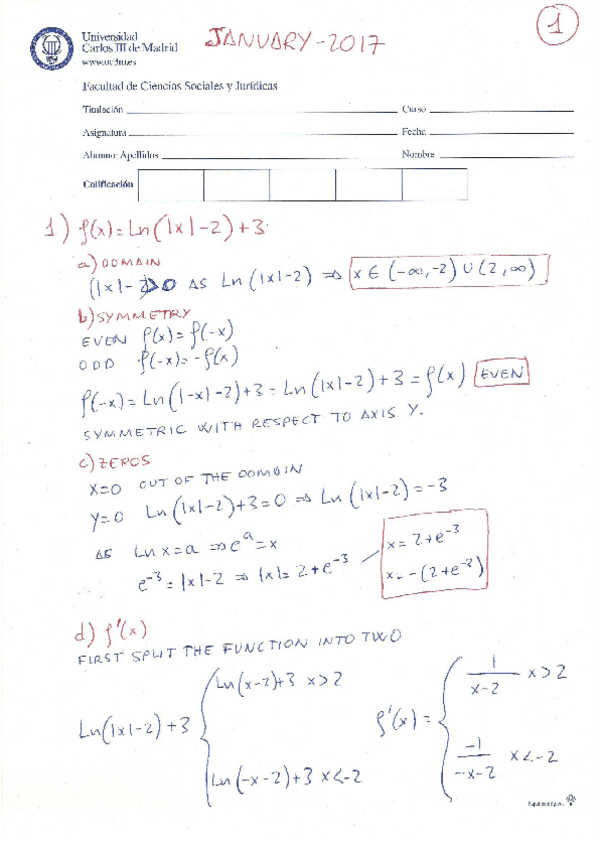 1
JANUARY-2017
Universidad
Carlos III de Madrid
www.uc3m.es
Facultad de Ciencias Sociales y Jurídicas
Titulación Curso
Asignatura Fecha
Alumno: Apellidos Nombre
Calificación
1) f(x)=Ln(|x|-2)+3
a) DOMAIN
(|x|-2>0 AS Ln(|x|-2) ⇒ x∈(-∞,-2)∪(2,∞)
b) SYMMETRY
EVEN f(x)=f(-x)
ODD f(-x)=-f(x)
f(-x)=Ln(|-x|-2)+3=Ln(|x|-2)+3=f(x) EVEN
SYMMETRIC WITH RESPECT TO AXIS Y.
c) ZEROS
x=0 OUT OF THE DOMAIN
y=0 Ln(|x|-2)+3=0 ⇒ Ln(|x|-2)=-3
AS Ln x=a ⇒ e^a=x
e^-3=|x|-2 ⇒ |x|=2+e^-3
x=2+e^-3
x=-(2+e^-2)
d) f'(x)
FIRST SPLIT THE FUNCTION INTO TWO
Ln(|x|-2)+3 { Ln(x-2)+3 x>2
Ln(-x-2)+3 x<-2
f'(x)= { 1/(x-2) x>2
-1/(-x-2) x<-2